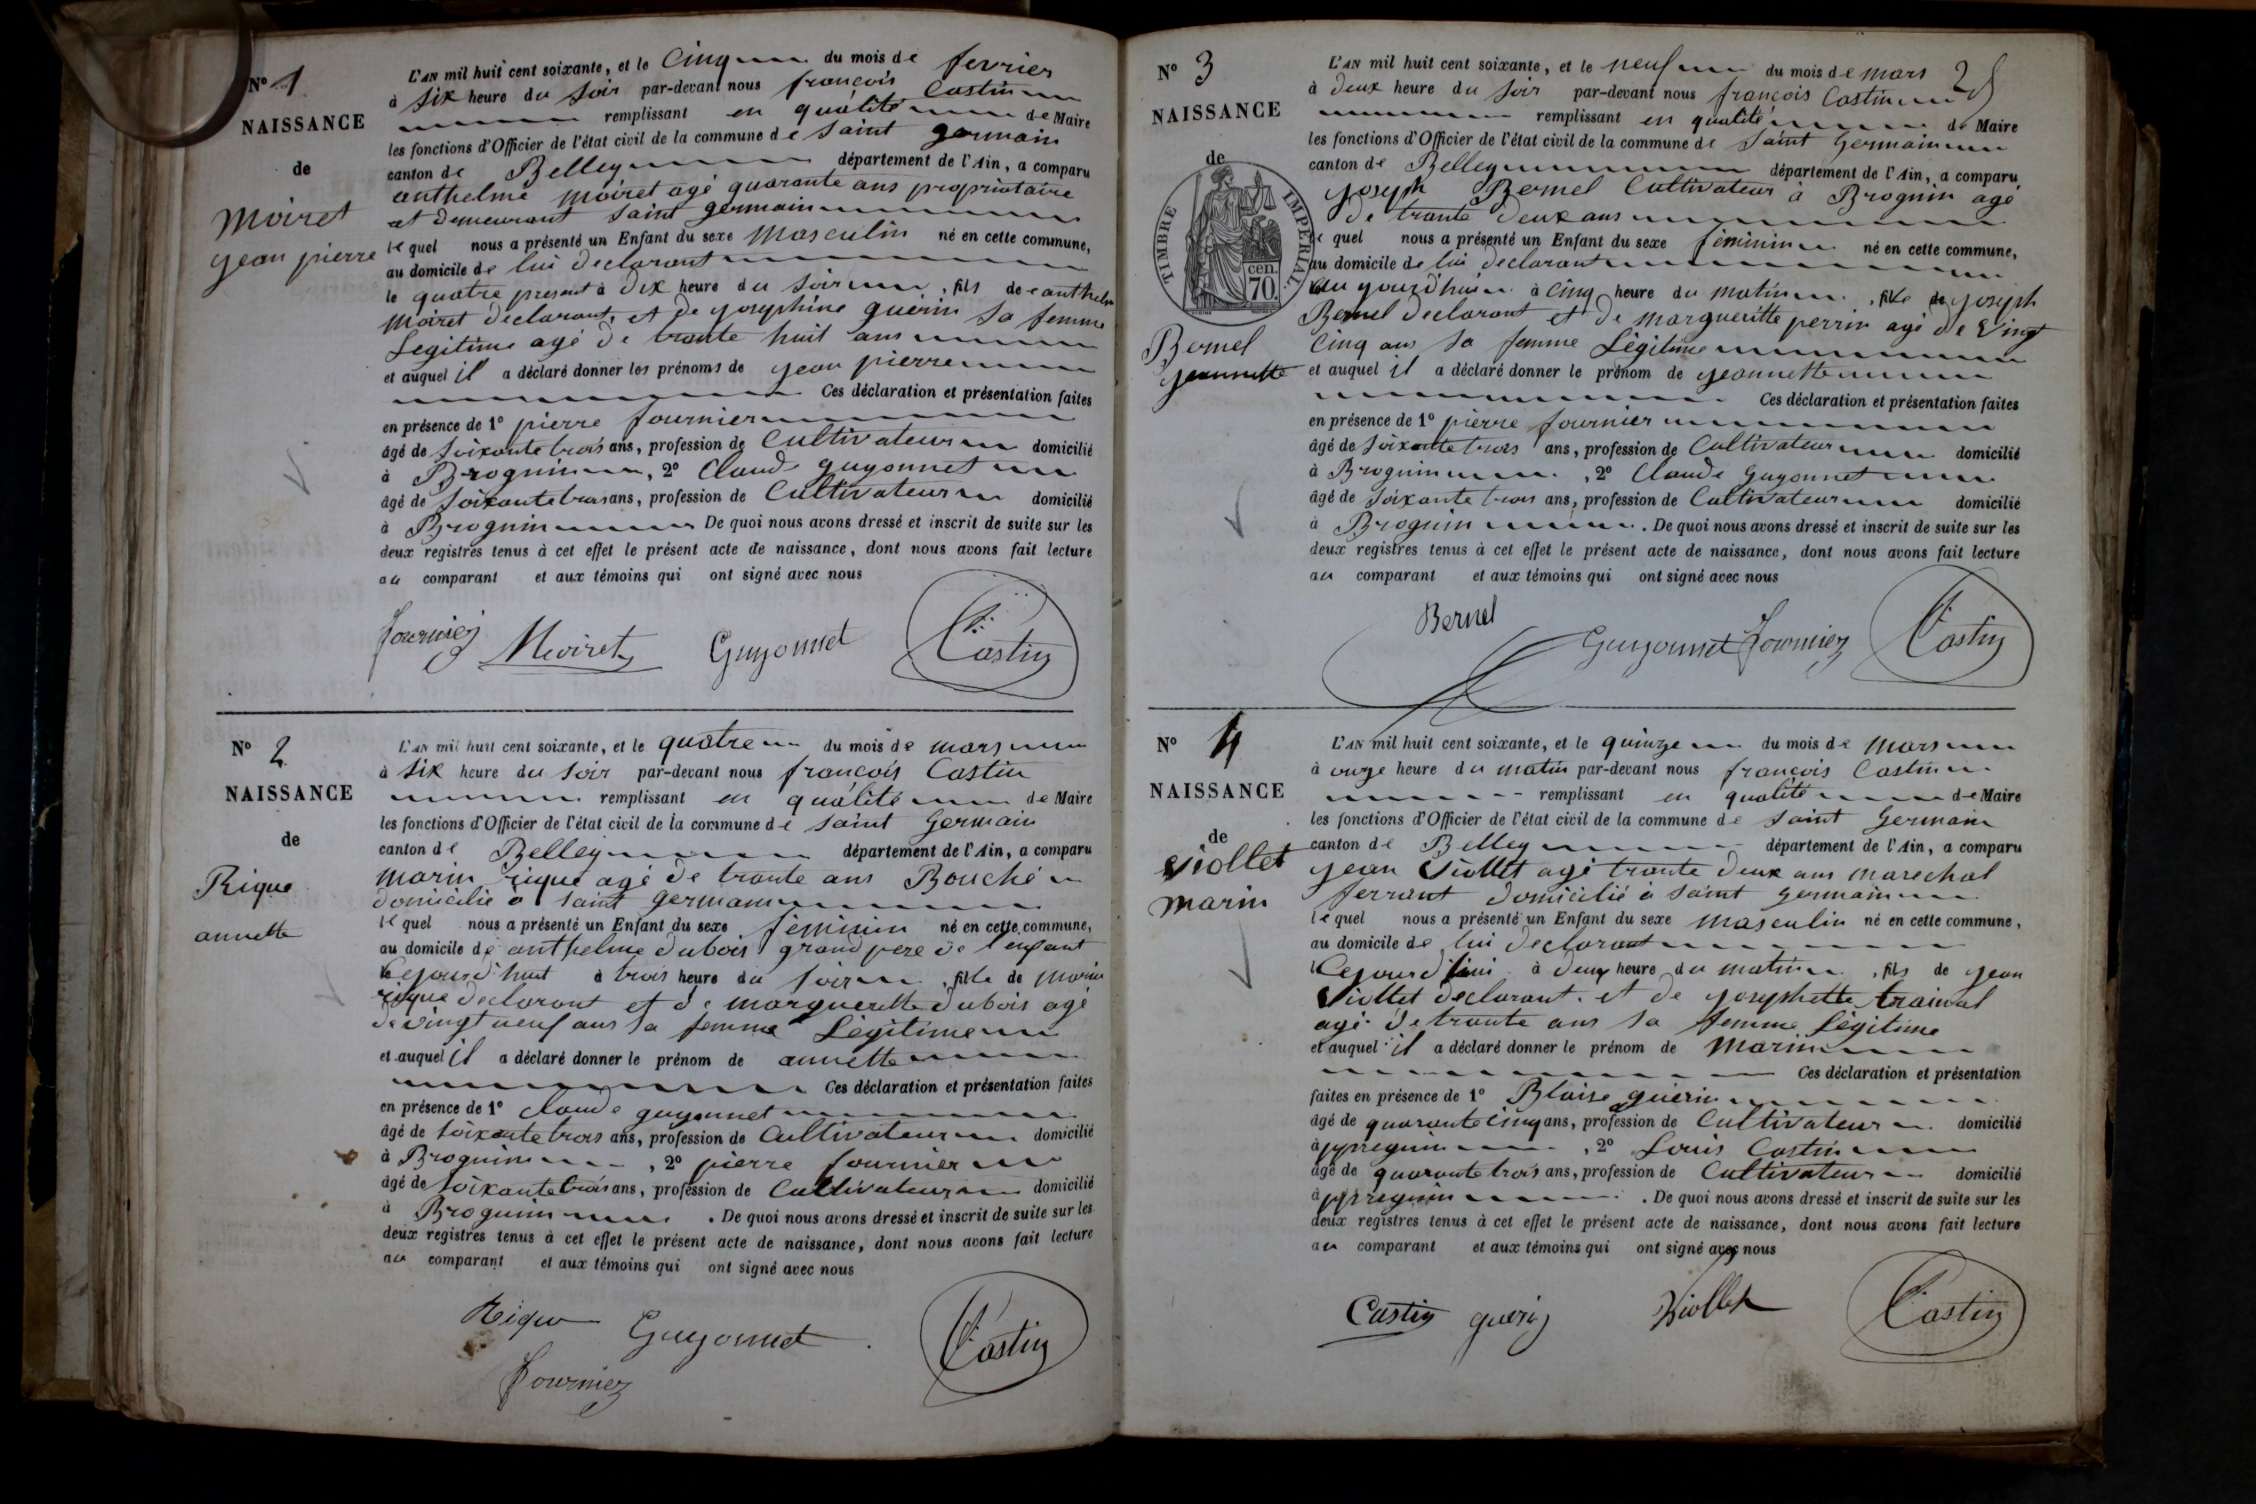 N° 1
NAISSANCE
de
moiret
jean pierre
L'AN mil huit cent soixante, et le cinq du mois de fevrier
à six heure du soir par-devant nous françois Castin
remplissant en qualité de Maire
les fonctions d'Officier de l'état civil de la commune de saint germain
canton de Belley département de l'Ain, a comparu
anthelme moiret agé quarante ans propriotaire
et demeurant saint germain
le quel nous a présenté un Enfant du sexe masculin né en cette commune,
au domicile de lui declarant
le quatre present à dix heure du soir, fils de anthelme
moiret declarant, et de josephine guérin sa femme
Legitime agé de trante huit ans
et auquel il a déclaré donner les prénoms de jean pierre
Ces déclaration et présentation faites
en présence de 1° pierre fournier
âgé de soixante trois ans, profession de Cultivateur domicilié
à Brognin, 2° Claude guyonnet
âgé de soixante trois ans, profession de Cultivateur domicilié
à Brognin De quoi nous avons dressé et inscrit de suite sur les
deux registres tenus à cet effet le présent acte de naissance, dont nous avons fait lecture
au comparant et aux témoins qui ont signé avec nous
fournier Moiret Guyonnet Castin
N° 2
NAISSANCE
de
Rique
annette
L'AN mil huit cent soixante, et le quatre du mois de mars
à six heure du soir par-devant nous françois Castin
remplissant en qualité de Maire
les fonctions d'Officier de l'état civil de la commune de saint Germain
canton de Belley département de l'Ain, a comparu
marin rique agé de trante ans Bouché
domicilié a saint germain
le quel nous a présenté un Enfant du sexe féminin né en cette commune,
au domicile de anthelme dubois grand pere de l'enfant
Cejourd'huit à trois heure du soir, fille de Marin
rique declarant et de marguerette dubois agé
de vingt neuf ans sa femme Légitime
et auquel il a déclaré donner le prénom de annette
Ces déclaration et présentation faites
en présence de 1° claude guyonnet
âgé de soixante trois ans, profession de Cultivateur domicilié
à Brognin, 2° pierre fournier
âgé de soixante trois ans, profession de Cultivateur domicilié
à Brognin. De quoi nous avons dressé et inscrit de suite sur les
deux registres tenus à cet effet le présent acte de naissance, dont nous avons fait lecture
au comparant et aux témoins qui ont signé avec nous
Rique Guyonnet Castin
fournier
N° 3
NAISSANCE
de
TIMBRE IMPERIAL
70 cen.
Bernel
jeannette
L'AN mil huit cent soixante, et le neuf du mois de mars
à deux heure du soir par-devant nous françois Castin
remplissant en qualité de Maire
les fonctions d'Officier de l'état civil de la commune de saint Germain
canton de Belley département de l'Ain, a comparu
joseph Bernel Cultivateur à Brognin agé
de trante deux ans
le quel nous a présenté un Enfant du sexe féminin né en cette commune,
au domicile de lui declarant
au jourd'hui à cinq heure du matin, fille de joseph
Bernel declarant et de margueritte perrin agé de vingt
cinq ans sa femme Légitime
et auquel il a déclaré donner le prénom de jeannette
Ces déclaration et présentation faites
en présence de 1° pierre fournier
âgé de soixante trois ans, profession de Cultivateur domicilié
à Brognin, 2° Claude Guyonnet
âgé de soixante trois ans, profession de Cultivateur domicilié
à Brognin. De quoi nous avons dressé et inscrit de suite sur les
deux registres tenus à cet effet le présent acte de naissance, dont nous avons fait lecture
au comparant et aux témoins qui ont signé avec nous
Bernel Guyonnet fournier Castin
N° 4
NAISSANCE
de
viollet
marin
L'AN mil huit cent soixante, et le quinze du mois de mars
à onze heure du matin par-devant nous françois Castin
remplissant en qualité de Maire
les fonctions d'Officier de l'état civil de la commune de saint germain
canton de Belley département de l'Ain, a comparu
jean viollet agé trante deux ans marechal
ferrant domicilié à saint germain
le quel nous a présenté un Enfant du sexe masculin né en cette commune,
au domicile de lui declarant
Cejourd'hui à deux heure du matin, fils de jean
viollet declarant. et de josephette
agé de trante ans sa femme Légitime
et auquel il a déclaré donner le prénom de marin
Ces déclaration et présentation
faites en présence de 1° Blaise guérin
âgé de quarante cinq ans, profession de Cultivateur domicilié
à, 2° Louis Castin
âgé de quarante trois ans, profession de Cultivateur domicilié
à. De quoi nous avons dressé et inscrit de suite sur les
deux registres tenus à cet effet le présent acte de naissance, dont nous avons fait lecture
au comparant et aux témoins qui ont signé avec nous
Castin guérin Viollet Castin